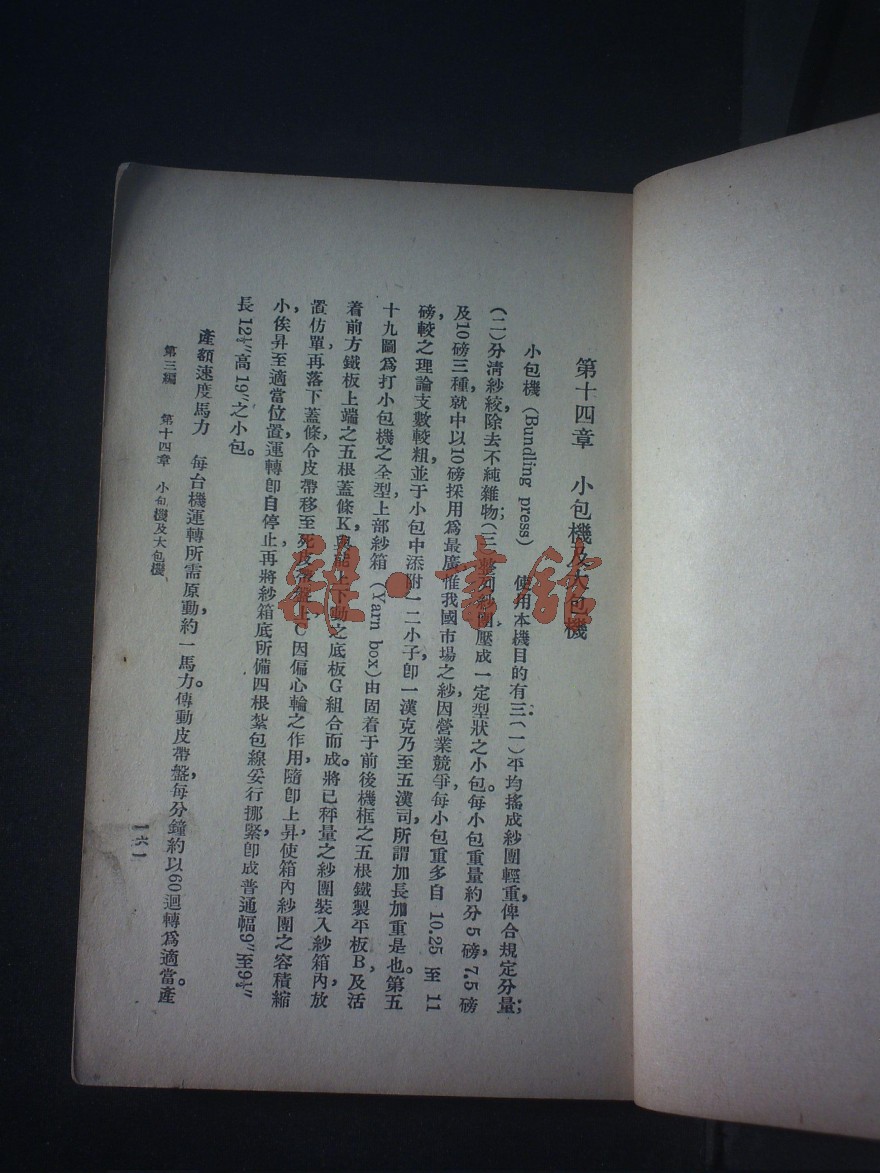 第十四章　小包機及大包機
小包機 (Bundling press)　使用本機目的有三：(一)平均搖成紗團輕重，俾合規定分量；
(二)分清紗絞除去不純雜物；(三)將列紗團壓成一定型狀之小包。每小包重量約分5磅，7.5磅
及10磅三種，就中以10磅採用爲最廣惟我國市場之紗，因營業競爭，每小包重多自 10.25 至 11
磅，較之理論支數較粗，並于小包中添附一二小子，卽一漢克乃至五漢司，所謂加長加重是也。第五
十九圖爲打小包機之全型，上部紗箱 (Yarn box) 由固着于前後機框之五根鐵製平板B，及活
着前方鐵板上端之五根蓋條K與能上下動之底板G組合而成。將已秤量之紗團裝入紗箱內，放
置仿單，再落下蓋條，令皮帶移至死皮帶盤上，C因偏心輪之作用，隨卽上昇，使箱內紗團之容積縮
小，俟昇至適當位置，運轉卽自停止，再將紗箱底所備四根紮包線妥行挪緊，卽成普通幅9″至9¼″
長12½″高19″之小包。
產額速度馬力　每台機運轉所需原動，約一馬力。傳動皮帶盤，每分鐘約以60迴轉爲適當。產
第三編　第十四章　小包機及大包機
一六一
羅·書館